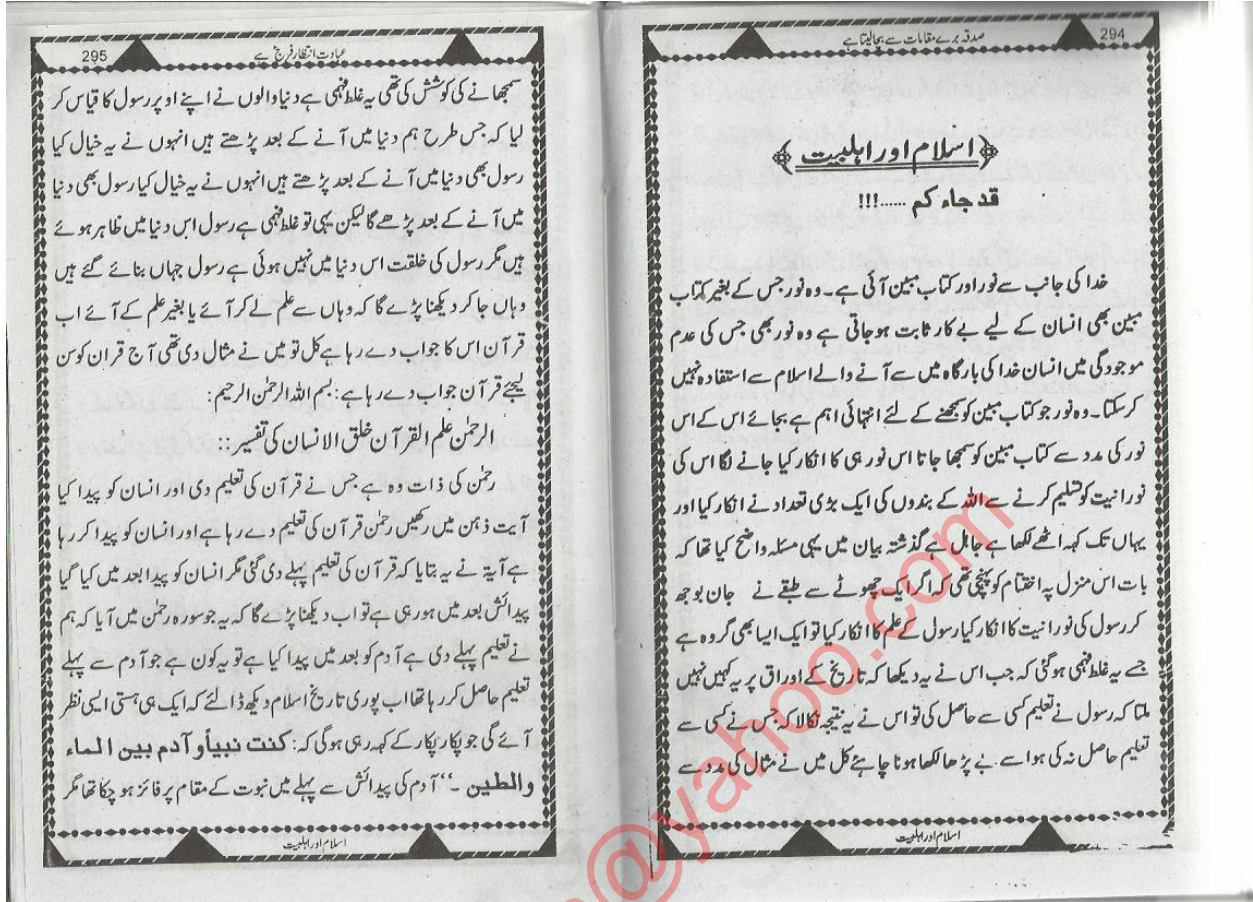 294
صدقہ برے مقامات سے بچالیتا ہے
اسلام اور اہلبیت
قد جاء کم ......!!!
خدا کی جانب سے نور اور کتاب مبین آئی ہے۔ وہ نور جس کے بغیر کتاب
مبین بھی انسان کے لیے بے کار ثابت ہوجاتی ہے وہ نور بھی جس کی عدم
موجودگی میں انسان خدا کی بارگاہ میں سے آنے والے اسلام سے استفادہ نہیں
کرسکتا۔ وہ نور جو کتاب مبین کو سمجھنے کے لئے انتہائی اہم ہے بجائے اس کے اس
نور کی مدد سے کتاب مبین کو سمجھا جاتا اس نور ہی کا انکار کیا جانے لگا اس کی
نورانیت کو تسلیم کرنے سے اللہ کے بندوں کی ایک بڑی تعداد نے انکار کیا اور
یہاں تک کہہ اٹھے لکھا ہے جاہل ہے گذشتہ بیان میں یہی مسئلہ واضح کیا تھا کہ
بات اس منزل پہ اختتام کو پہنچی تھی کہ اگر ایک چھوٹے سے طبقے نے جان بوجھ
کر رسول کی نورانیت کا انکار کیا رسول کے علم کا انکار کیا تو ایک ایسا بھی گروہ ہے
جسے یہ غلط فہمی ہوگئی کہ جب اس نے یہ دیکھا کہ تاریخ کے اوراق پر یہ کہیں نہیں
ملتا کہ رسول نے تعلیم کسی سے حاصل کی تو اس نے یہ نتیجہ نکالا کہ جس نے کسی سے
تعلیم حاصل نہ کی ہو اسے بے پڑھا لکھا ہونا چاہئے کل میں نے مثال کی مدد سے
اسلام اور اہلبیت
295
عبادت انتظار فرج ہے
سمجھانے کی کوشش کی تھی یہ غلط فہمی ہے دنیا والوں نے اپنے اوپر رسول کا قیاس کر
لیا کہ جس طرح ہم دنیا میں آنے کے بعد پڑھتے ہیں انہوں نے یہ خیال کیا
رسول بھی دنیا میں آنے کے بعد پڑھتے ہیں انہوں نے یہ خیال کیا رسول بھی دنیا
میں آنے کے بعد پڑھے گا لیکن یہی تو غلط فہمی ہے رسول اس دنیا میں ظاہر ہوئے
ہیں مگر رسول کی خلقت اس دنیا میں نہیں ہوئی ہے رسول جہاں بنائے گئے ہیں
وہاں جاکر دیکھنا پڑے گا کہ وہاں سے علم لے کر آئے یا بغیر علم کے آئے اب
قرآن اس کا جواب دے رہا ہے کل تو میں نے مثال دی تھی آج قران کو سن
لیجئے قرآن جواب دے رہا ہے: بسم اللہ الرحمٰن الرحیم:
الرحمٰن علم القرآن خلق الانسان کی تفسیر::
رحمٰن کی ذات وہ ہے جس نے قرآن کی تعلیم دی اور انسان کو پیدا کیا
آیت ذہن میں رکھیں رحمٰن قرآن کی تعلیم دے رہا ہے اور انسان کو پیدا کر رہا
ہے آیۃ نے یہ بتایا کہ قرآن کی تعلیم پہلے دی گئی مگر انسان کو پیدا بعد میں کیا گیا
پیدائش بعد میں ہورہی ہے تو اب دیکھنا پڑے گا کہ یہ جو سورہ رحمٰن میں آیا کہ ہم
نے تعلیم پہلے دی ہے آدم کو بعد میں پیدا کیا ہے تو یہ کون ہے جو آدم سے پہلے
تعلیم حاصل کر رہا تھا اب پوری تاریخ اسلام دیکھ ڈالئے کہ ایک ہی ہستی ایسی نظر
آئے گی جو پکار پکار کے کہہ رہی ہوگی کہ: کنت نبیاً و آدم بین الماء
والطین ۔‘‘ آدم کی پیدائش سے پہلے میں نبوت کے مقام پر فائز ہوچکا تھا مگر
اسلام اور اہلبیت
@yahoo.com